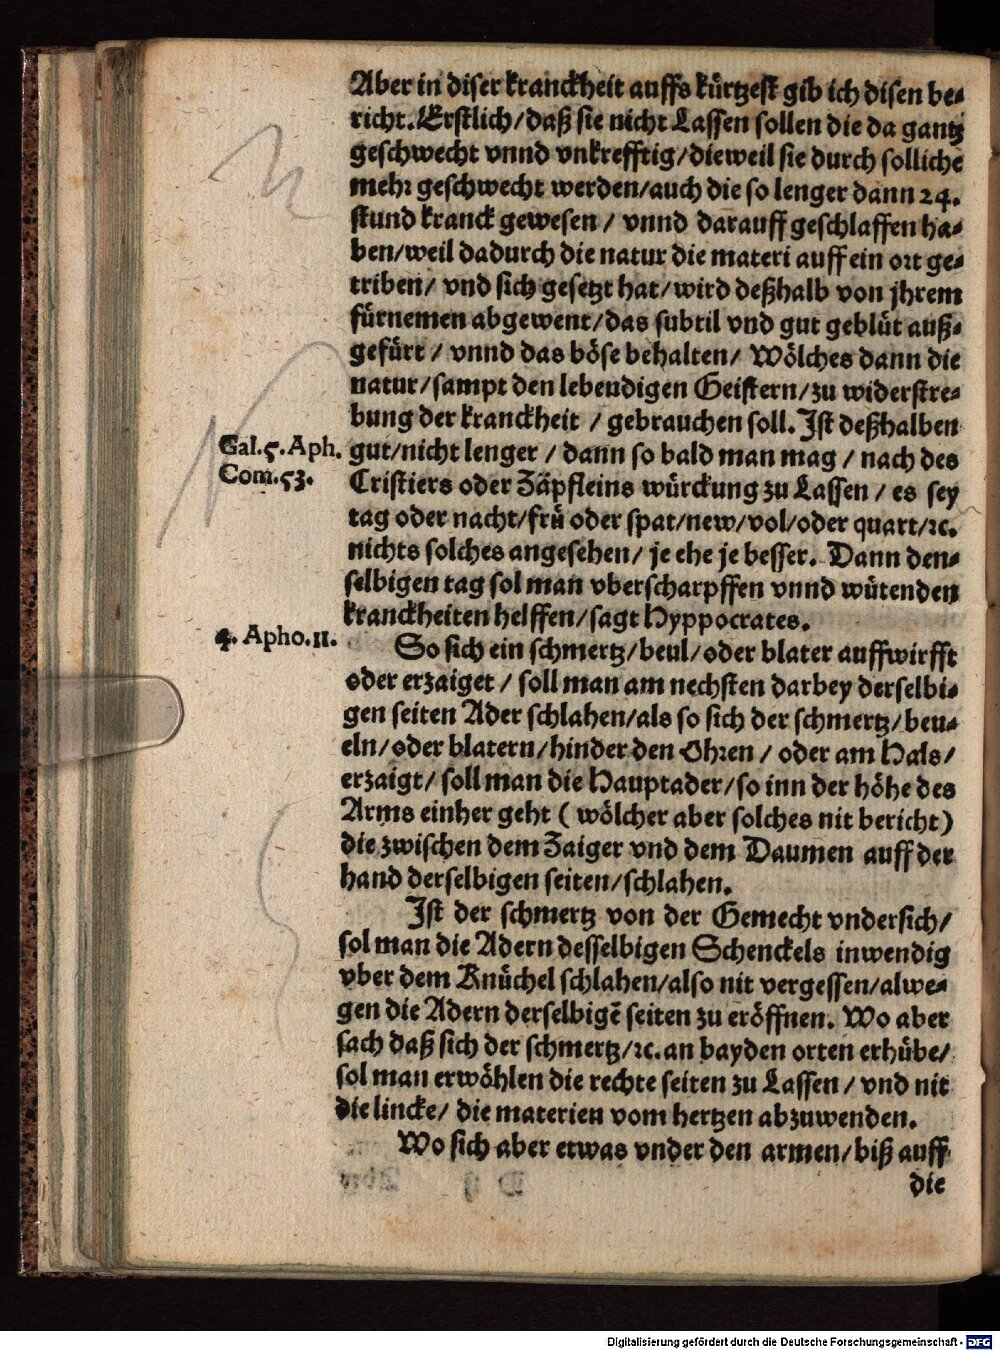 Aber in diser kranckheit auffs kürtzest gib ich disen be-
richt. Erstlich/daß sie nicht Lassen sollen die da gantz
geschwecht vnnd vnkrefftig/dieweil sie durch solliche
mehr geschwecht werden/auch die so lenger dann 24.
stund kranck gewesen / vnnd darauff geschlaffen ha-
ben/weil dadurch die natur die materi auff ein ort ge-
triben/ vnd sich gesetzt hat/wird deßhalb von jhrem
fürnemen abgewent/das subtil vnd gut geblüt auß-
gefürt / vnnd das böse behalten/ Wölches dann die
natur/sampt den lebendigen Geistern/zu widerstre-
bung der kranckheit / gebrauchen soll. Ist deßhalben
Gal.5.Aph.
Com.53.
gut/nicht lenger / dann so bald man mag / nach des
Cristiers oder Zäpfleins würckung zu Lassen / es sey
tag oder nacht/frü oder spat/new/vol/oder quart/ꝛc.
nichts solches angesehen/ je ehe je besser. Dann den-
selbigen tag sol man vberscharpffen vnnd wütenden
kranckheiten helffen/sagt Hyppocrates.
4. Apho.11.
So sich ein schmertz/beul/oder blater auffwirfft
oder erzaiget / soll man am nechsten darbey derselbi-
gen seiten Ader schlahen/als so sich der schmertz/beu-
eln/oder blatern/hinder den Ohren / oder am Hals/
erzaigt/ soll man die Hauptader/so inn der höhe des
Arms einher geht ( wölcher aber solches nit bericht)
die zwischen dem Zaiger vnd dem Daumen auff der
hand derselbigen seiten/schlahen.
Ist der schmertz von der Gemecht vndersich/
sol man die Adern desselbigen Schenckels inwendig
vber dem Knüchel schlahen/also nit vergessen/alwe-
gen die Adern derselbigẽ seiten zu eröffnen. Wo aber
sach daß sich der schmertz/ꝛc. an bayden orten erhübe/
sol man erwöhlen die rechte seiten zu Lassen / vnd nit
die lincke/ die materien vom hertzen abzuwenden.
Wo sich aber etwas vnder den armen/biß auff
die
Digitalisierung gefördert durch die Deutsche Forschungsgemeinschaft - DFG